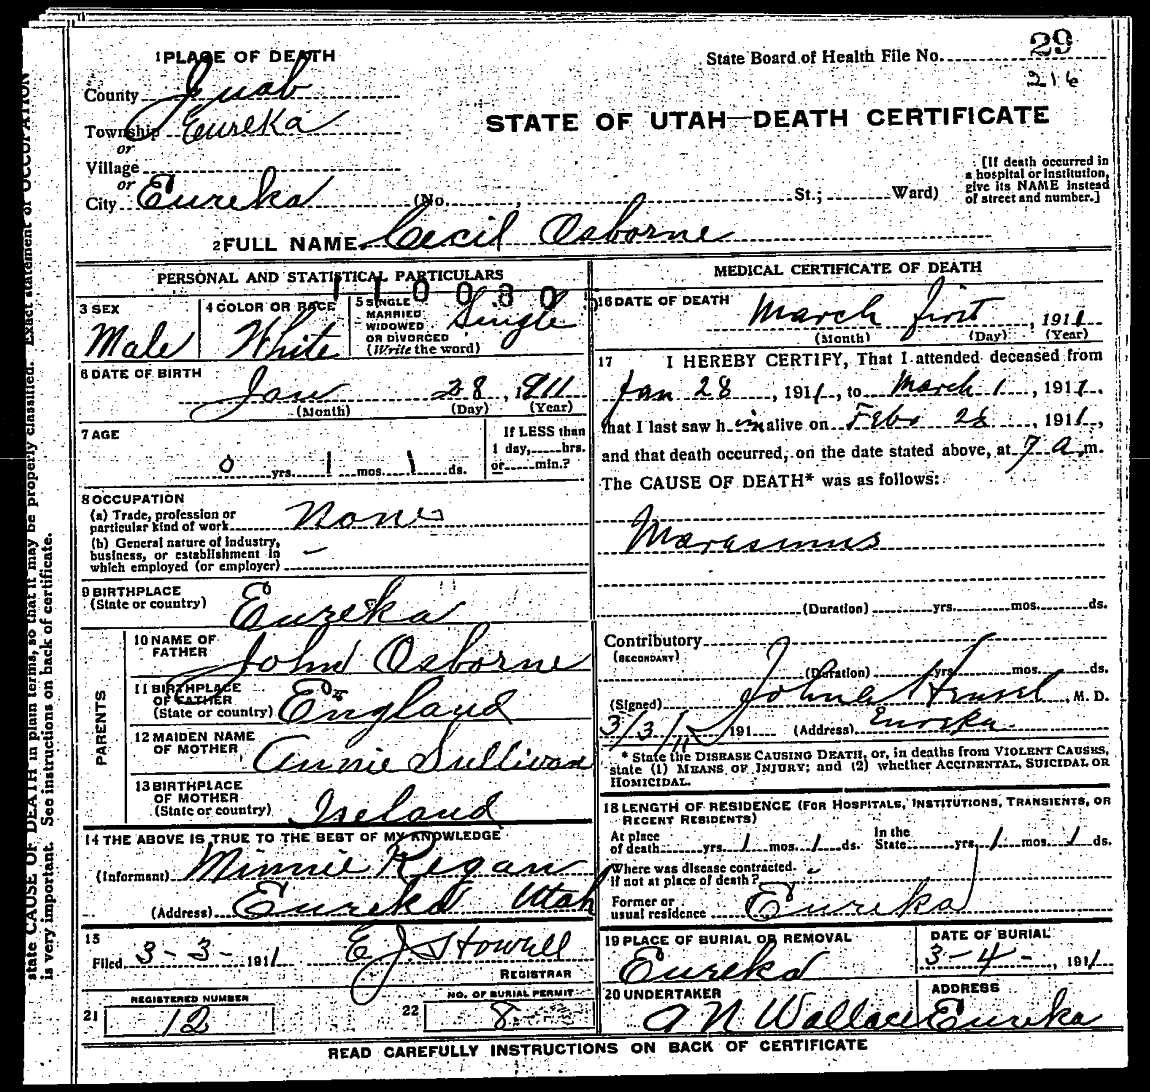 1 PLACE OF DEATH
State Board of Health File No. 29
216
County Juab
Township Eureka
or
Village
or
City Eureka (No. , St.; Ward)
STATE OF UTAH—DEATH CERTIFICATE
[If death occurred in
a hospital or institution,
give its NAME instead
of street and number.]
2 FULL NAME Cecil Osborne
PERSONAL AND STATISTICAL PARTICULARS
110080
3 SEX
Male
4 COLOR OR RACE
White
5 SINGLE
MARRIED
WIDOWED
OR DIVORCED
(Write the word)
Single
6 DATE OF BIRTH
Jan 28, 1911
(Month) (Day) (Year)
7 AGE
0 yrs. 1 mos. 1 ds.
If LESS than
1 day, hrs.
or min.?
8 OCCUPATION
(a) Trade, profession or
particular kind of work None
(b) General nature of industry,
business, or establishment in
which employed (or employer) —
9 BIRTHPLACE
(State or country) Eureka
PARENTS
10 NAME OF
FATHER John Osborne
11 BIRTHPLACE
OF FATHER
(State or country) England
12 MAIDEN NAME
OF MOTHER Annie Sullivan
13 BIRTHPLACE
OF MOTHER
(State or country) Ireland
14 THE ABOVE IS TRUE TO THE BEST OF MY KNOWLEDGE
(Informant) Minnie Regan
(Address) Eureka Utah
15
Filed 3-3- 1911 E J Howell
REGISTRAR
21 REGISTERED NUMBER
12
22 NO. OF BURIAL PERMIT
8
MEDICAL CERTIFICATE OF DEATH
16 DATE OF DEATH
March first, 1911
(Month) (Day) (Year)
17 I HEREBY CERTIFY, That I attended deceased from
Jan 28, 1911, to March 1, 1911.
that I last saw him alive on Feb 28, 1911,
and that death occurred, on the date stated above, at 7 a m.
The CAUSE OF DEATH* was as follows:
Marasmus
(Duration) yrs. mos. ds.
Contributory
(SECONDARY)
(Duration) yrs. mos. ds.
(Signed) John Hensel, M. D.
3/3/11 191 (Address) Eureka
* State the DISEASE CAUSING DEATH, or, in deaths from VIOLENT CAUSES,
state (1) MEANS OF INJURY; and (2) whether ACCIDENTAL, SUICIDAL OR
HOMICIDAL.
18 LENGTH OF RESIDENCE (FOR HOSPITALS, INSTITUTIONS, TRANSIENTS, OR
RECENT RESIDENTS)
At place
of death yrs. 1 mos. 1 ds.
In the
State yrs. 1 mos. 1 ds.
Where was disease contracted.
if not at place of death?
Former or
usual residence Eureka
19 PLACE OF BURIAL OR REMOVAL
Eureka
DATE OF BURIAL
3-4-, 1911
20 UNDERTAKER
A N Wallace
ADDRESS
Eureka
READ CAREFULLY INSTRUCTIONS ON BACK OF CERTIFICATE
state CAUSE OF DEATH in plain terms, so that it may be properly classified. Exact statement of OCCUPATION
is very important. See instructions on back of certificate.